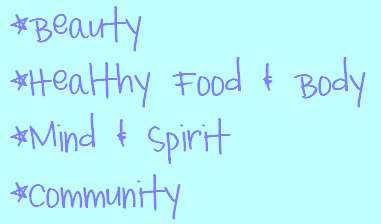 *Beauty
*Healthy Food & Body
*Mind & Spirit
*Community